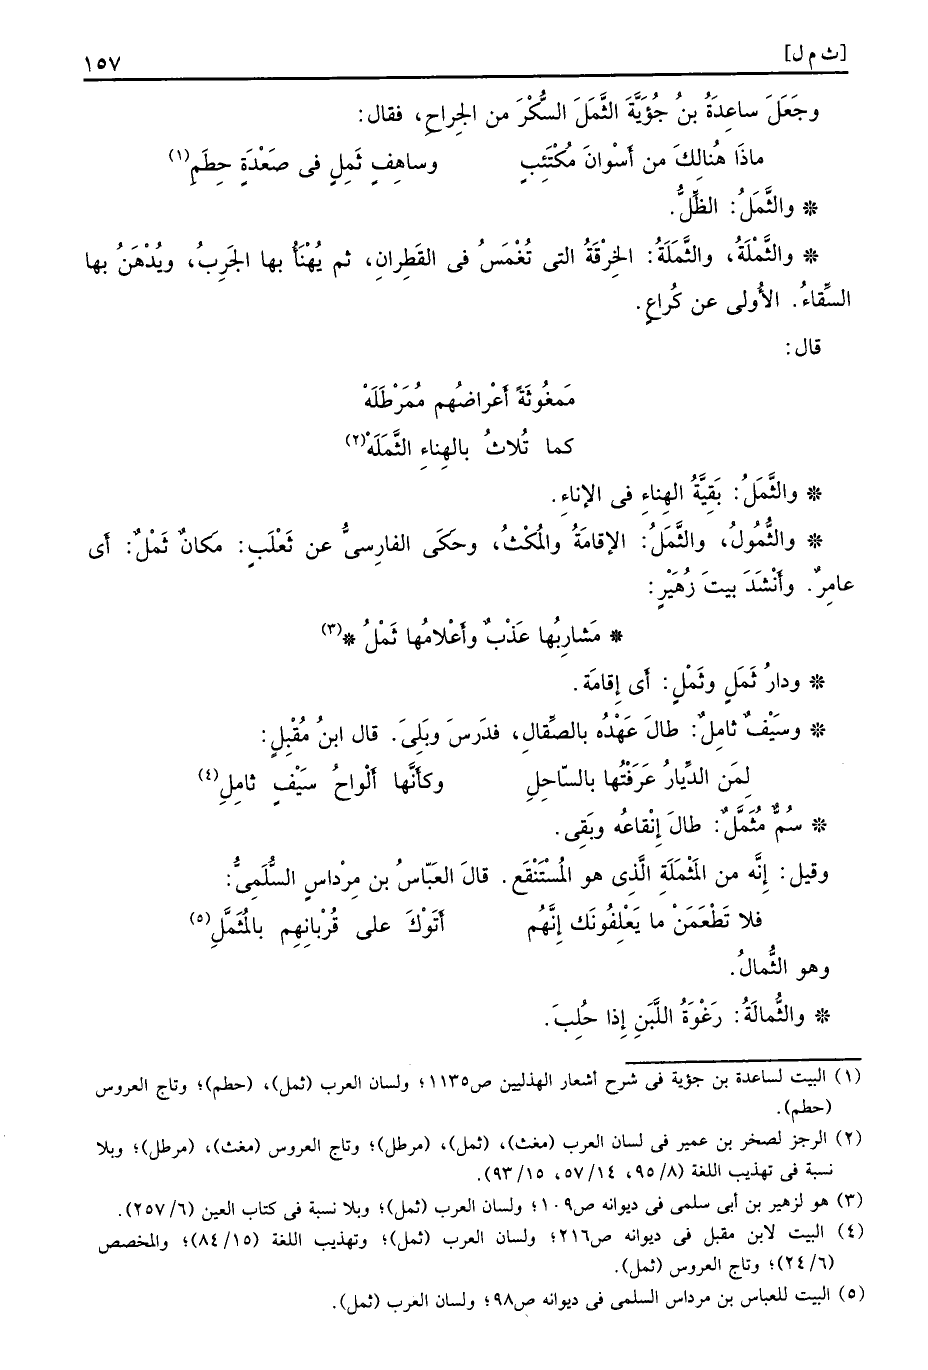 [ث م ل] ١٥٧
وجَعَلَ ساعِدَةُ بنُ جُؤيَّةَ الثَّمَلَ السُّكْرَ من الجِراحِ، فقال:
ماذَا هُنالِكَ من أَسْوانَ مُكْتَئِبٍ وساهِفٍ ثَمِلٍ فى صَعْدَةٍ حِطَمِ(١)
* والثَّمَلُ: الظِّلُّ.
* والثَّمْلَةُ، والثَّمَلَةُ: الخِرْقَةُ التى تُغْمَسُ فى القَطِرانِ، ثم يُهْنَأُ بها الجَرِبُ، ويُدْهَنُ بها
السِّقاءُ. الأُولى عن كُراعٍ.
قال:
مَمغُوثَةً أَعْراضُهم مُمَرْطَلَهْ
كما تُلاثُ بالهِناءِ الثَّمَلَهْ(٢)
* والثَّمَلُ: بَقِيَّةُ الهِناءِ فى الإناءِ.
* والثُّمُولُ، والثَّمَلُ: الإقامَةُ والمُكْثُ، وحَكَى الفارسىُّ عن ثَعْلَبٍ: مكانٌ ثَمْلٌ: أى
عامِرٌ. وأَنْشَدَ بيتَ زُهَيْرٍ:
* مَشاربُها عَذْبٌ وأَعْلامُها ثَمْلُ *(٣)
* ودارُ ثَمَلٍ وثَمْلٍ: أى إقامَة.
* وسَيْفٌ ثامِلٌ: طالَ عَهْدُه بالصِّقالِ، فدَرَسَ وبَلِىَ. قال ابنُ مُقْبِلٍ:
لِمَن الدِّيارُ عَرَفْتُها بالسّاحِلِ وكأَنَّها أَلْواحُ سَيْفٍ ثامِلِ(٤)
* سُمٌّ مُثَمَّلٌ: طالَ إِنْقاعُه وبَقِى.
وقيل: إِنَّه من المَثْمَلَةِ الَّذِى هو المُسْتَنْقَع. قالَ العَبّاسُ بن مِرْداسٍ السُّلَمِىُّ:
فلا تَطْعَمَنْ ما يَعْلِفُونَك إِنَّهُم أَتَوْكَ على قُرْبانِهِم بالمُثَمَّلِ(٥)
وهو الثُّمالُ.
* والثُّمالَةُ: رَغْوَةُ اللَّبَنِ إذا حُلِبَ.
(١) البيت لساعدة بن جؤية فى شرح أشعار الهذليين ص١١٣٥؛ ولسان العرب (ثمل)، (حطم)؛ وتاج العروس
(حطم).
(٢) الرجز لصخر بن عمير فى لسان العرب (مغث)، (ثمل)، (مرطل)؛ وتاج العروس (مغث)، (مرطل)؛ وبلا
نسبة فى تهذيب اللغة (٨/٩٥، ١٤/٥٧، ١٥/٩٣).
(٣) هو لزهير بن أبى سلمى فى ديوانه ص١٠٩؛ ولسان العرب (ثمل)؛ وبلا نسبة فى كتاب العين (٦/٢٥٧).
(٤) البيت لابن مقبل فى ديوانه ص٢١٦؛ ولسان العرب (ثمل)؛ وتهذيب اللغة (١٥/٨٤)؛ والمخصص
(٦/٢٤)؛ وتاج العروس (ثمل).
(٥) البيت للعباس بن مرداس السلمى فى ديوانه ص٩٨؛ ولسان العرب (ثمل).